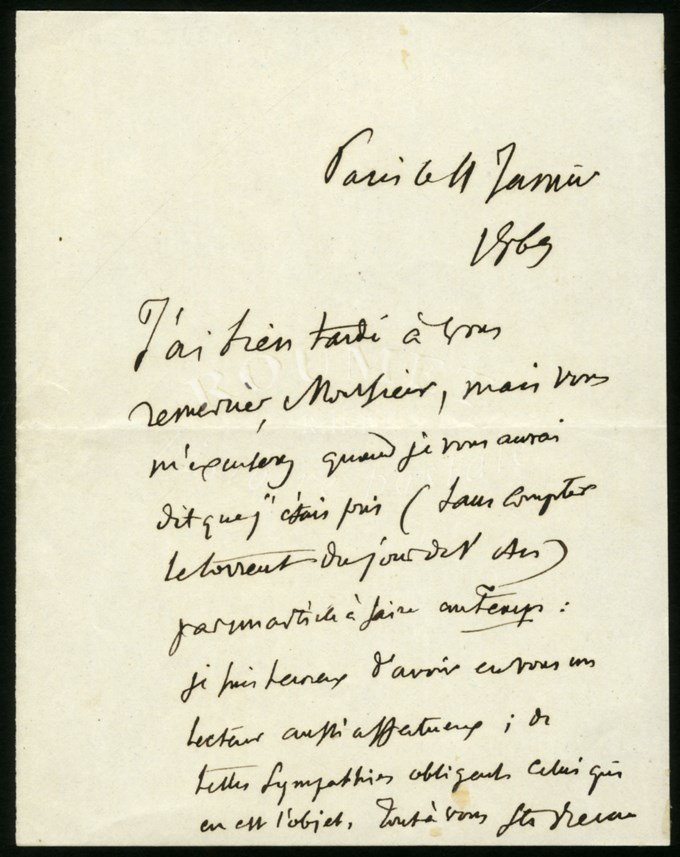 Paris ce 11 Janvier
1869
J'ai bien tardé à vous
remercier, Monsieur, mais vous
m'excuserez quand je vous aurai
dit que j'étais pris (sans compter
le torrent du jour de l'An)
par un article à faire au Temps :
je suis heureux d'avoir en vous un
lecteur aussi affectueux ; de
telles sympathies obligent celui qui
en est l'objet. Tout à vous Ste Beuve